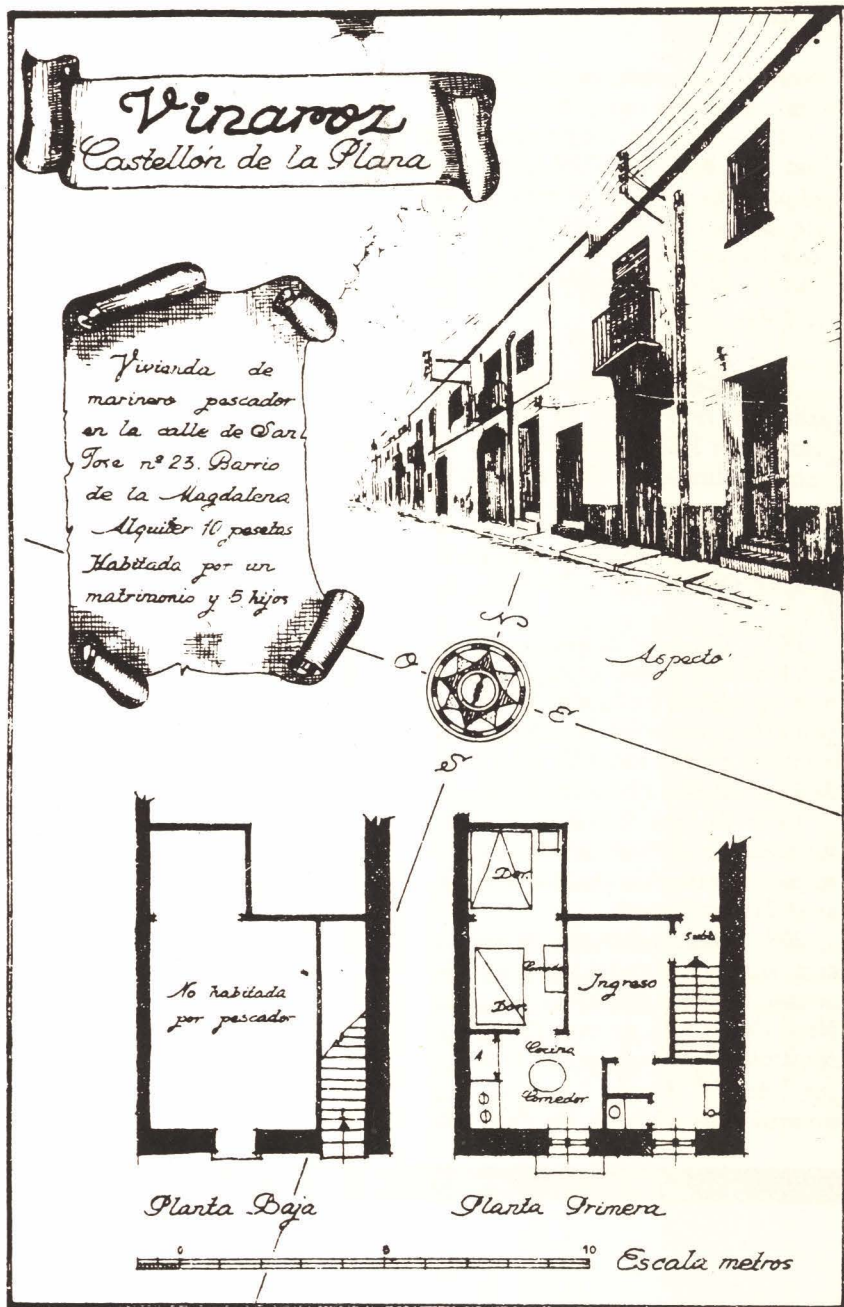 Vinaroz
Castellón de la Plana
Vivienda de
marinero pescador
en la calle de San
Jose nº 23. Barrio
de la Magdalena
Alquiler 10 pesetas
Habitada por un
matrimonio y 5 hijos
N
O
E
S
Aspecto
Dor.
Sube
No habitada
por pescador
Ingreso
Dor.
Cocina
Comedor
Planta Baja
Planta Primera
0
10
Escala metros